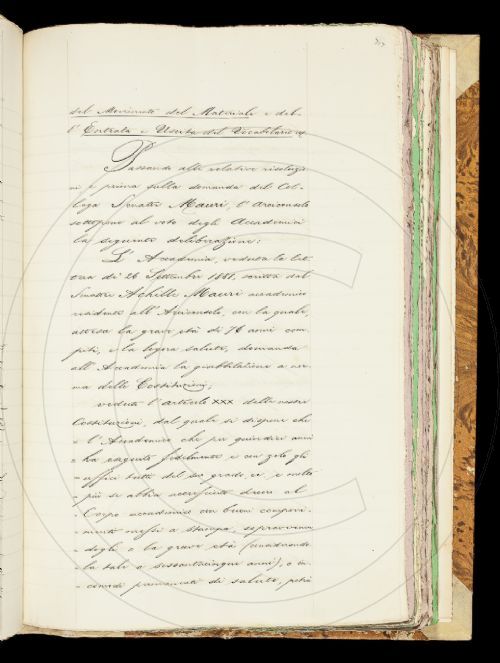 del Movimento del Materiale e del-
l'Entrata e Uscita del Vocabolario.
Passando alle relative risoluzio
ni e prima sulla domanda del Col-
lega Senatore Mauri, l'Arciconsolo
sottopone al voto degli Accademici
la seguente deliberazione:
L'Accademia, veduta la let
tera di 26 Settembre 1881, scritta dal
Senatore Achille Mauri accademico
residente all'Arciconsolo, con la quale,
attesa la grave età di 76 anni com-
piti, e la logora salute, domanda
all'Accademia la giubbilazione a nor-
ma delle Costituzioni;
veduto l'articolo XXX delle nostre
Costituzioni, dal quale si dispone che
"l'Accademico che per quindici anni
"ha eseguito fedelmente e con zelo gli
"uffici tutti del suo grado, e
"più se abbia accresciuto decoro al
"Corpo accademico con buoni componi-
"menti messi a stampa, sopravvenen
"dogli o la grave età (
"la tale a sessantacinque anni), o in-
"comodi permanenti di salute, potrà